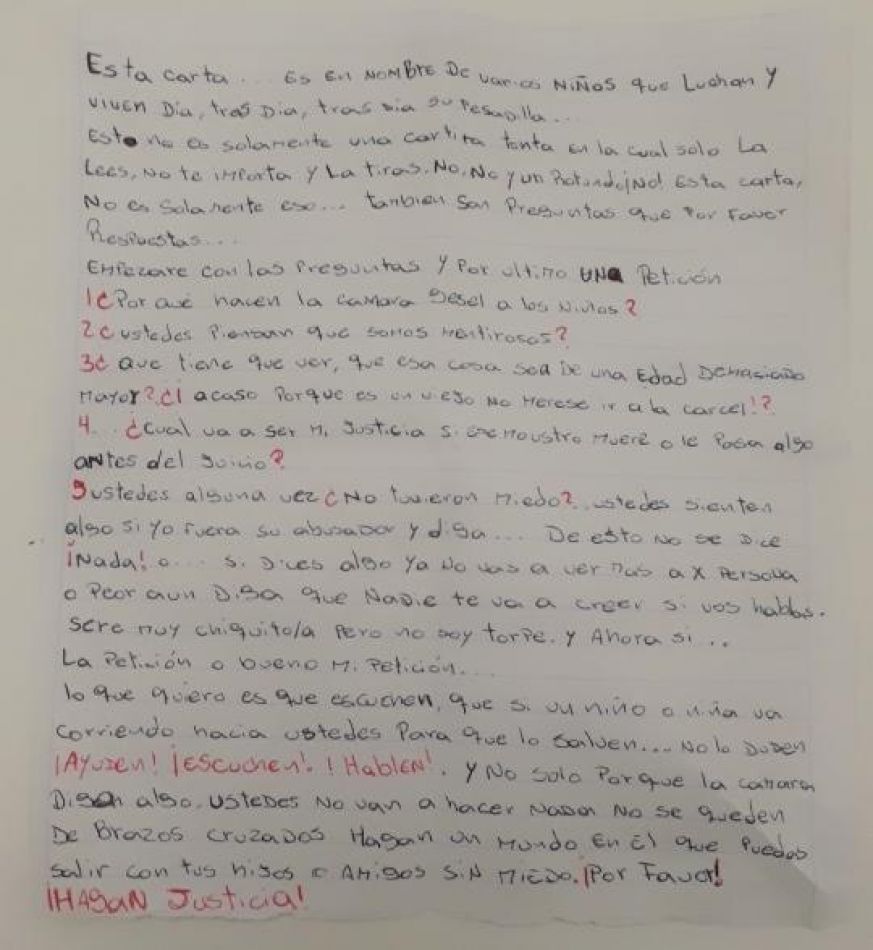 Esta carta... Es En NOMBrE De varios NiÑos que Luchan Y
viven Dia, tras Dia, tras dia su Pesadilla...
Esto no es solamente una cartita tonta en la cual solo La
Lees, No te iMPorta y La tiras. No, No y un Rotundo ¡No! Esta carta,
No es Solamente eso... tambien Son Preguntas que Por Favor
Respuestas...
EMPezare con las Preguntas y Por ultimo UNA Petición
1¿Por que hacen la camara Gesel a los Niños?
2¿ustedes Piensan que somos Mentirosos?
3¿ que tiene que ver, que esa cosa sea De una Edad DeMasiado
Mayor?¿! acaso Porque es un viejo No Merese ir a la carcel!?
4.. ¿Cual va a ser Mi Justicia si ese Moustro Muere o le Pasa algo
antes del Juicio?
5ustedes alguna vez ¿No tuvieron Miedo? ustedes sienten
algo si yo fuera su abusador y diga... De esto No se Dice
¡Nada! o... Si Dices algo Ya No vas a ver Mas a X Persona
o Peor aun Diga que Nadie te va a creer si vos hablas.
Sere Muy chiquito/a Pero no soy torpe. y Ahora si...
La Petición o bueno Mi Petición...
lo que quiero es que escuchen, que si un niño o niña va
corriendo hacia ustedes Para que lo salven... No lo Duden
¡Ayuden! ¡escuchen! ! HablEN!. Y No Solo Porque la camara
Diga algo. ustedes No van a hacer Nada No se queden
De Brazos cruzados Hagan un Mundo En El que Puedas
salir con tus hijos o AMigos SiN MiEDO. ¡Por Favor!
¡HAgaN Justicia!